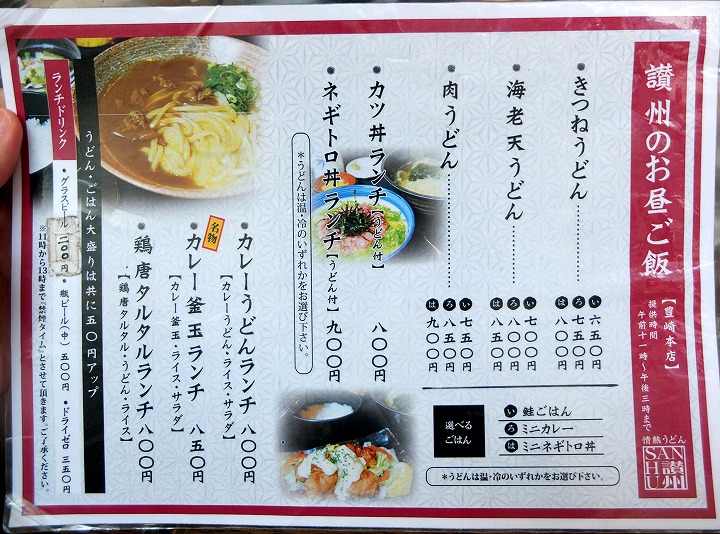 讃州のお昼ご飯
【豊崎本店】
提供時間
午前十一時～午後三時まで
情熱うどん
SAN
HU
讃州
・きつねうどん
い 六五〇円
ろ 七五〇円
は 八〇〇円
・海老天うどん
い 七〇〇円
ろ 八〇〇円
は 八五〇円
・肉うどん
い 七五〇円
ろ 八五〇円
は 九〇〇円
選べる
ごはん
い 鮭ごはん
ろ ミニカレー
は ミニネギトロ丼
＊うどんは温・冷のいずれかをお選び下さい。
・カツ丼ランチ【うどん付】 八〇〇円
・ネギトロ丼ランチ【うどん付】 九〇〇円
＊うどんは温・冷のいずれかをお選び下さい。
・カレーうどんランチ 八〇〇円
【カレーうどん・ライス・サラダ】
名物
・カレー釜玉ランチ 八五〇円
【カレー釜玉・ライス・サラダ】
・鶏唐タルタルランチ 八〇〇円
【鶏唐タルタル・うどん・ライス】
うどん・ごはん大盛りは共に五〇円アップ
ランチドリンク
・グラスビール 二〇〇円・瓶ビール(中) 五〇〇円・ドライゼロ 三五〇円
※11時から13時まで『禁煙タイム』とさせて頂きます。ご了承ください。